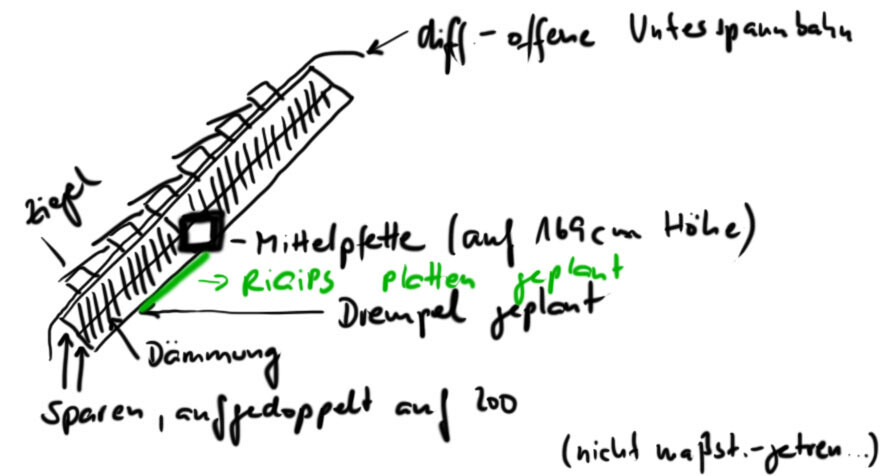 diff-offene Unterspannbahn
Ziegel
Mittelpfette (auf 169cm Höhe)
RiGiPS platten geplant
Drempel geplant
Dämmung
Sparen, aufgedoppelt auf 200
(nicht maßst.-getreu...)